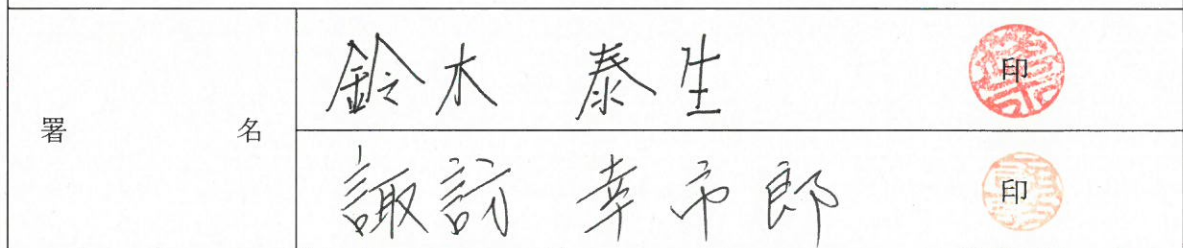 署名
鈴木 泰生 印
諏訪 幸市郎 印